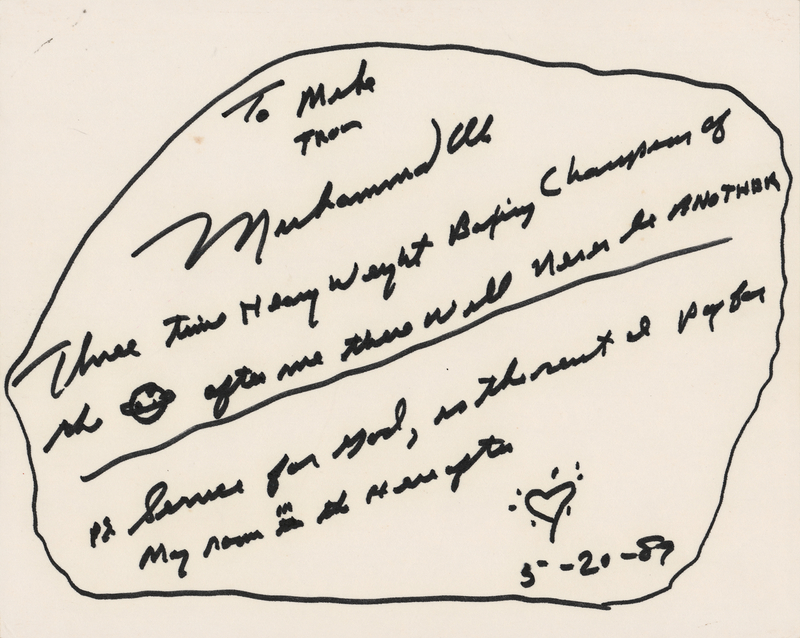 To Mike
From
Muhammad Ali
Three time Heavy Weight Boxing Champion of
the after me there Will Never be ANOTHER
PS Service for God, is the rent I Pay for
My room in the Hereafter
5-20-89